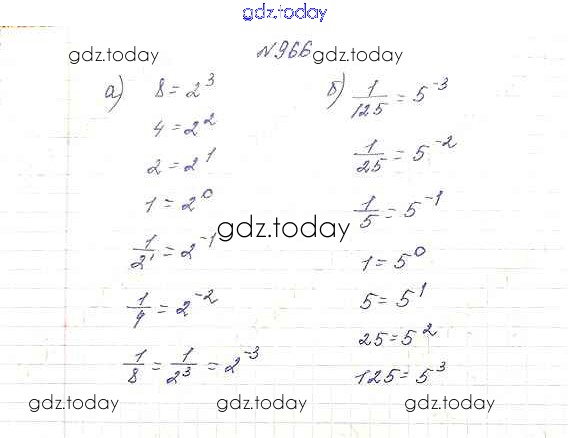 gdz.today
№966
gdz.today gdz.today
а) 8 = 2³
4 = 2²
2 = 2¹
1 = 2⁰
1/2¹ = 2⁻¹
1/4 = 2⁻²
1/8 = 1/2³ = 2⁻³
б) 1/125 = 5⁻³
1/25 = 5⁻²
1/5 = 5⁻¹
1 = 5⁰
5 = 5¹
25 = 5²
125 = 5³
gdz.today
gdz.today gdz.today gdz.today